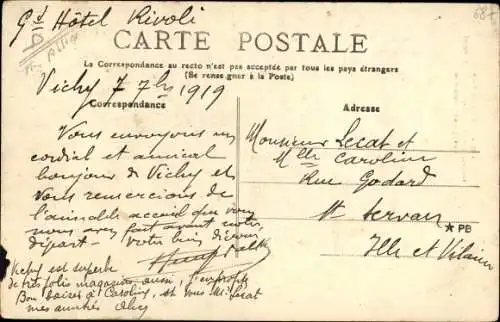 Gd Hôtel Rivoli
CARTE POSTALE
La Correspondance au recto n'est pas acceptée par tous les pays étrangers
(Se renseigner à la Poste)
Vichy 7 7bre 1919
Correspondance
Adresse
Vous envoyons un
cordial et amical
bonjour de Vichy et
Vous remercions de
l'aimable accueil que vous
nous avez fait avant notre
départ - Votre bien
Vichy est superbe
de très jolis magasins aussi, j'en profite
Bon baisers à Caroline, et vous Mr Lecat
mes amitiés
Monsieur Lecat et
Mlle Caroline
Rue Godard
St Servan
Ille et Vilaine
★ PB